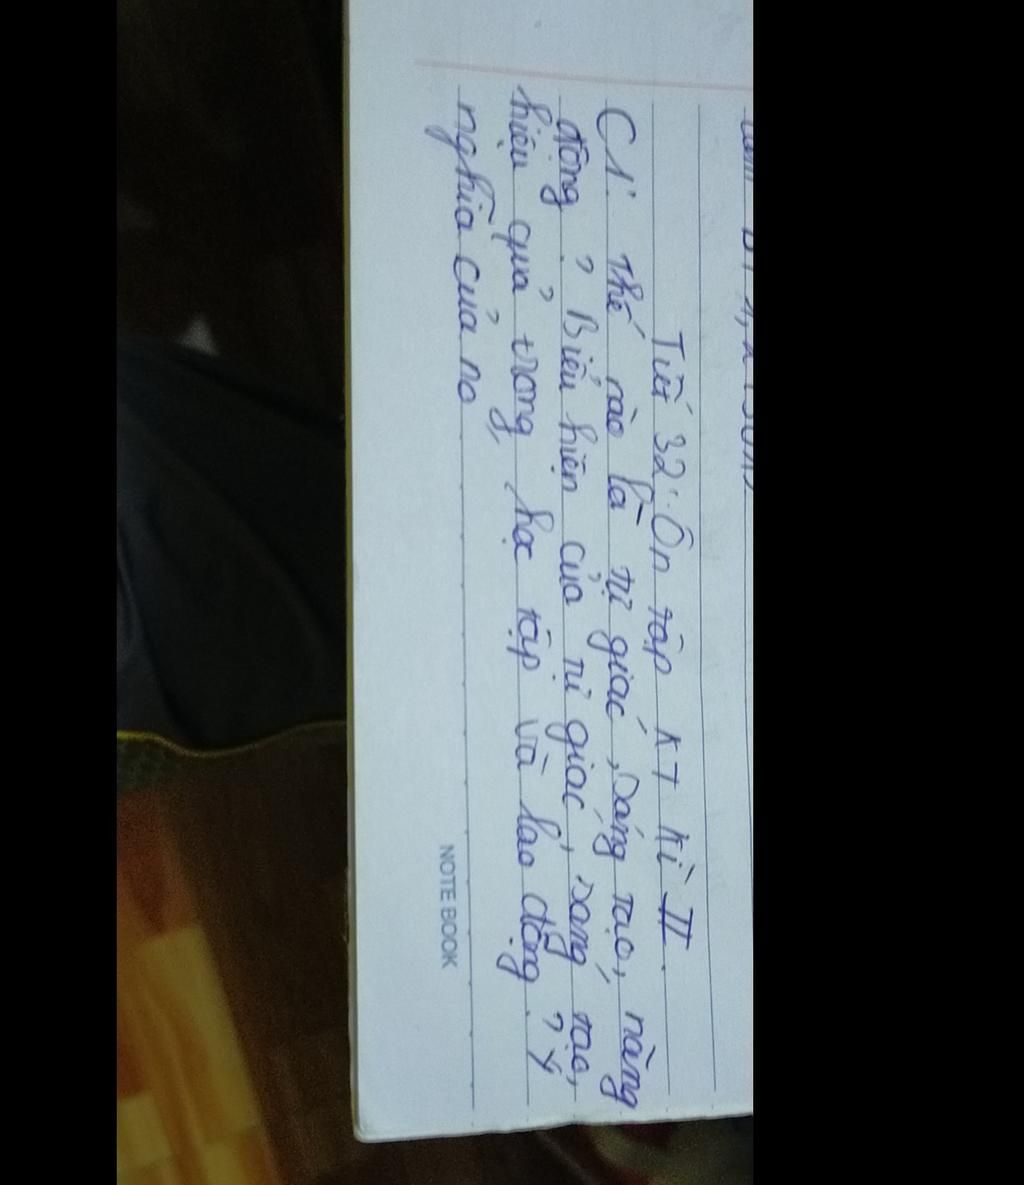 Tiết 32: Ôn tập KT kì II.
C1: thế nào là tự giác, sáng tạo, năng
động ? Biểu hiện của tự giác, sáng tạo,
hiệu quả trong học tập và lao động ? Ý
nghĩa của nó
NOTE BOOK